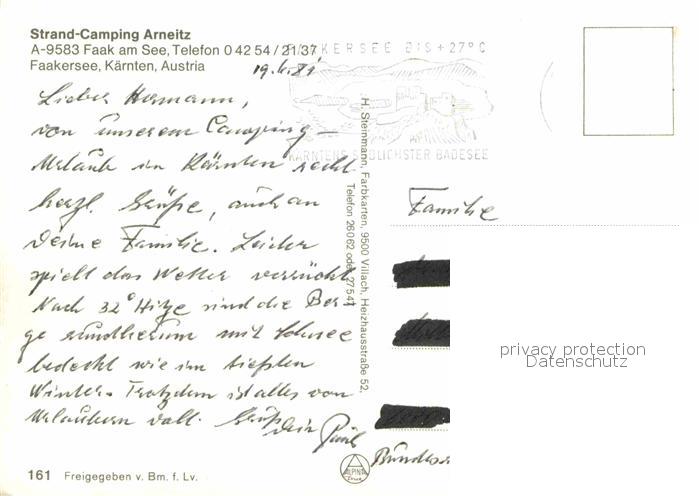 Strand-Camping Arneitz
A-9583 Faak am See, Telefon 0 42 54 / 21 37
Faakersee, Kärnten, Austria
FAAKERSEE BIS +27°C
KÄRNTENS LIEBLICHSTER BADESEE
Lieber Hermann,
von unserem Camping-
Urlaub in Kärnten recht
herzl. Grüße, auch an
Deine Familie. Leider
spielt das Wetter verrückt
Nach 32° Hitze sind die Ber
ge rundherum mit Schnee
bedeckt wie im tiefsten
Winter. Trotzdem ist alles von
Urlaubern voll. Gruß
Dein
H. Steinmann, Farbkarten, 9500 Villach, Heizhausstraße 52,
Telefon 26 0 62 oder 27 5 41
Familie
privacy protection
Datenschutz
Bundes
161 Freigegeben v. Bm. f. Lv.
ALPINA